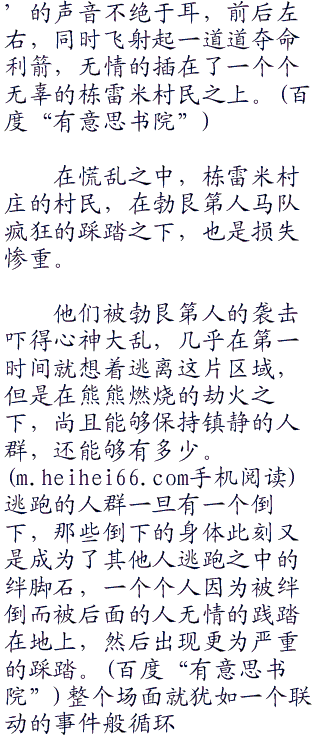 ’的声音不绝于耳，前后左
右，同时飞射起一道道夺命
利箭，无情的插在了一个个
无辜的栋雷米村民之上。(百
度“有意思书院”)
在慌乱之中，栋雷米村
庄的村民，在勃艮第人马队
疯狂的踩踏之下，也是损失
惨重。
他们被勃艮第人的袭击
吓得心神大乱，几乎在第一
时间就想着逃离这片区域，
但是在熊熊燃烧的劫火之
下，尚且能够保持镇静的人
群，还能够有多少。
(m.heihei66.com手机阅读)
逃跑的人群一旦有一个倒
下，那些倒下的身体此刻又
是成为了其他人逃跑之中的
绊脚石，一个个人因为被绊
倒而被后面的人无情的践踏
在地上，然后出现更为严重
的踩踏。(百度“有意思书
院”)整个场面就犹如一个联
动的事件般循环